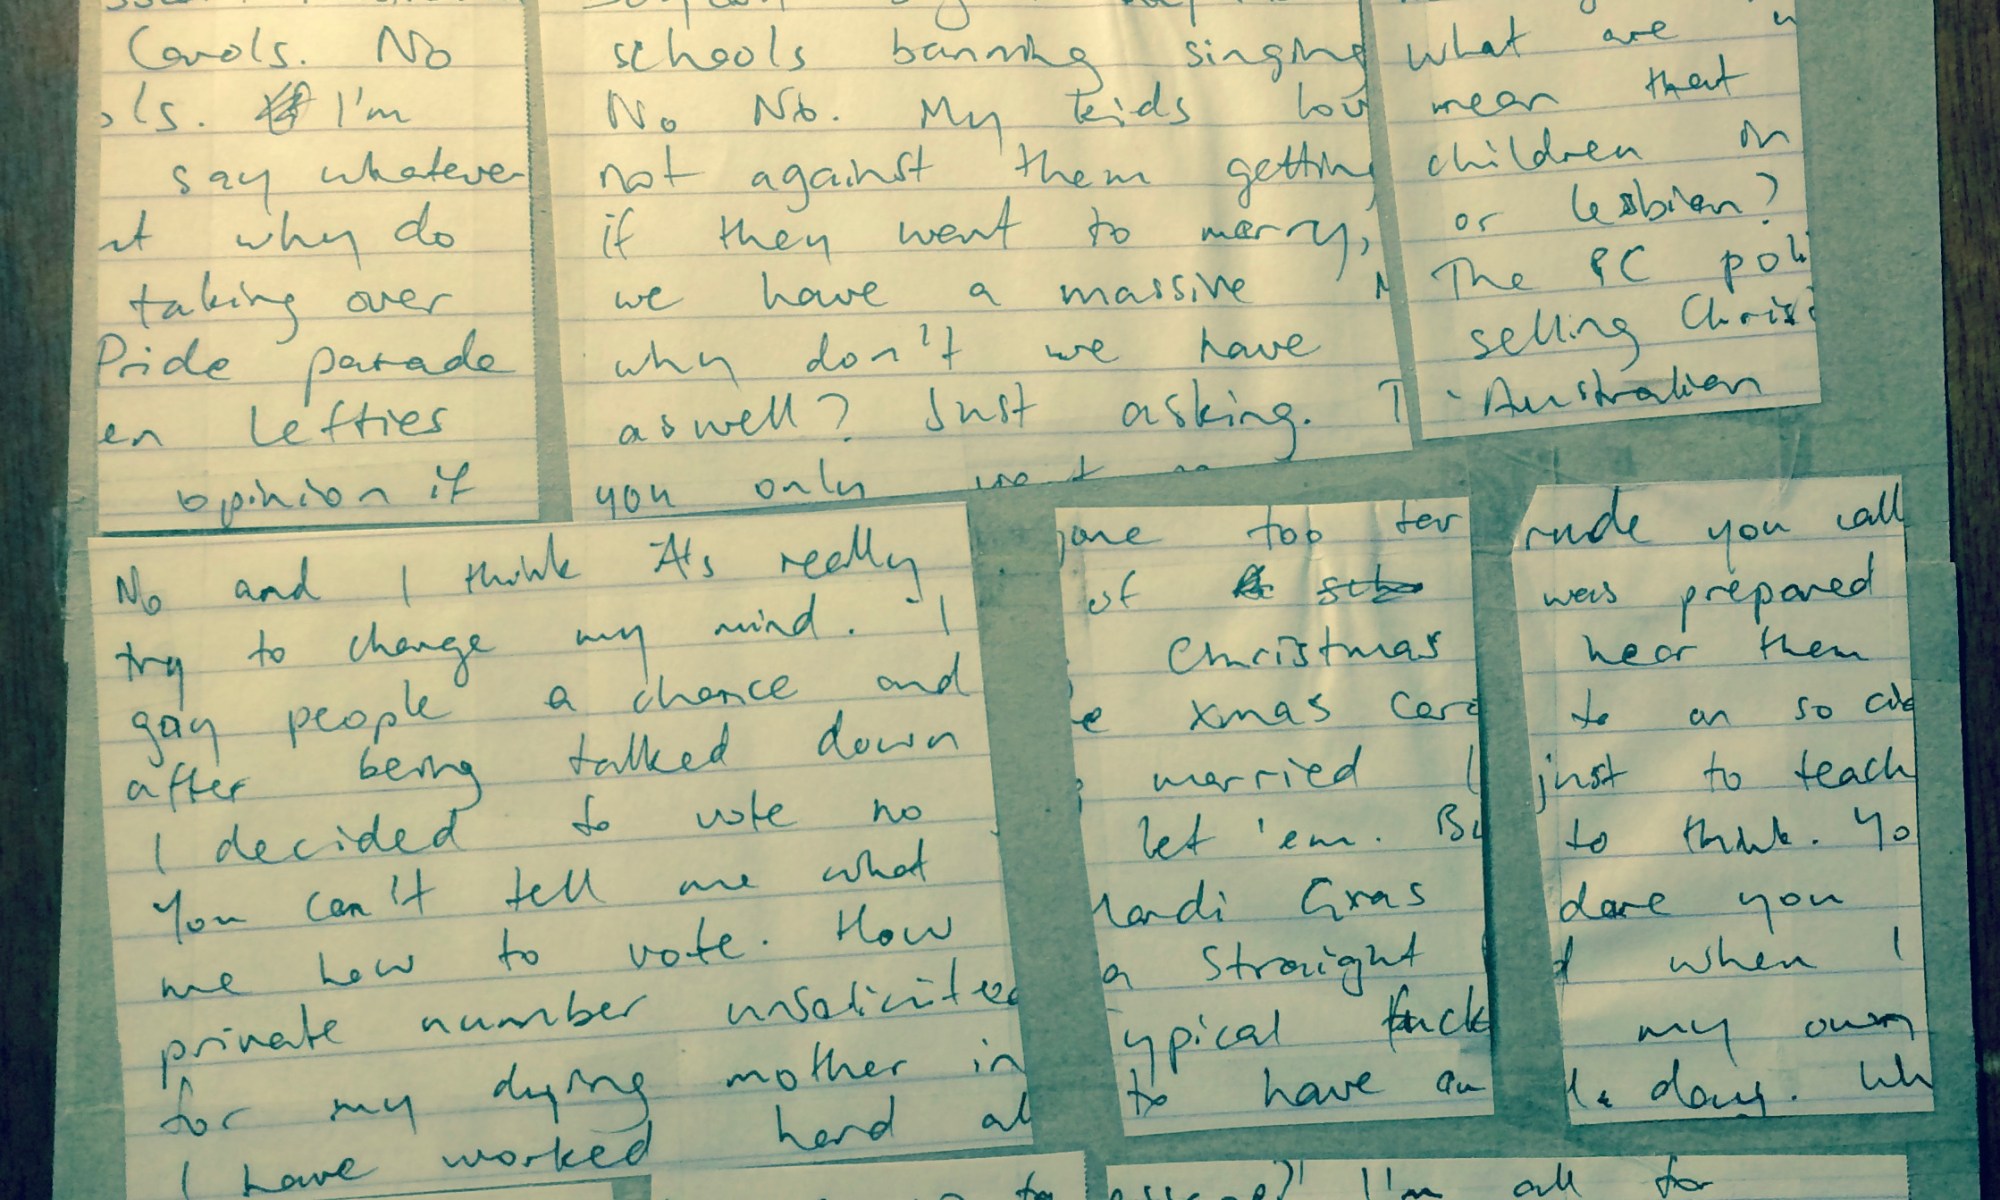 Carols. No
ols. I'm
say whatever
nt why do
taking over
Pride parade
en lefties
opinion if
schools banning singing
No No. My kids lov
not against them getting
if they went to marry,
we have a massive M
why don't we have
aswell? Just asking. T
you only
what are
mean that
children on
or lesbian?
The PC poli
selling Chris
Australian
No and I think it's really
try to change my mind. I
gay people a chance and
after being talked down
I decided to vote no
You can't tell me what
me how to vote. How
private number unsolicited
for my dying mother in
I have worked hard al
gone too far
of
Christmas
e xmas Caro
married I
let 'em. Bu
Mardi Gras
a Straight
ypical fuck
to have an
rude you call
was prepared
hear them
to an so
just to teach
to think. Yo
dare you
d when I
my own
day. Wh
to
I'm all for